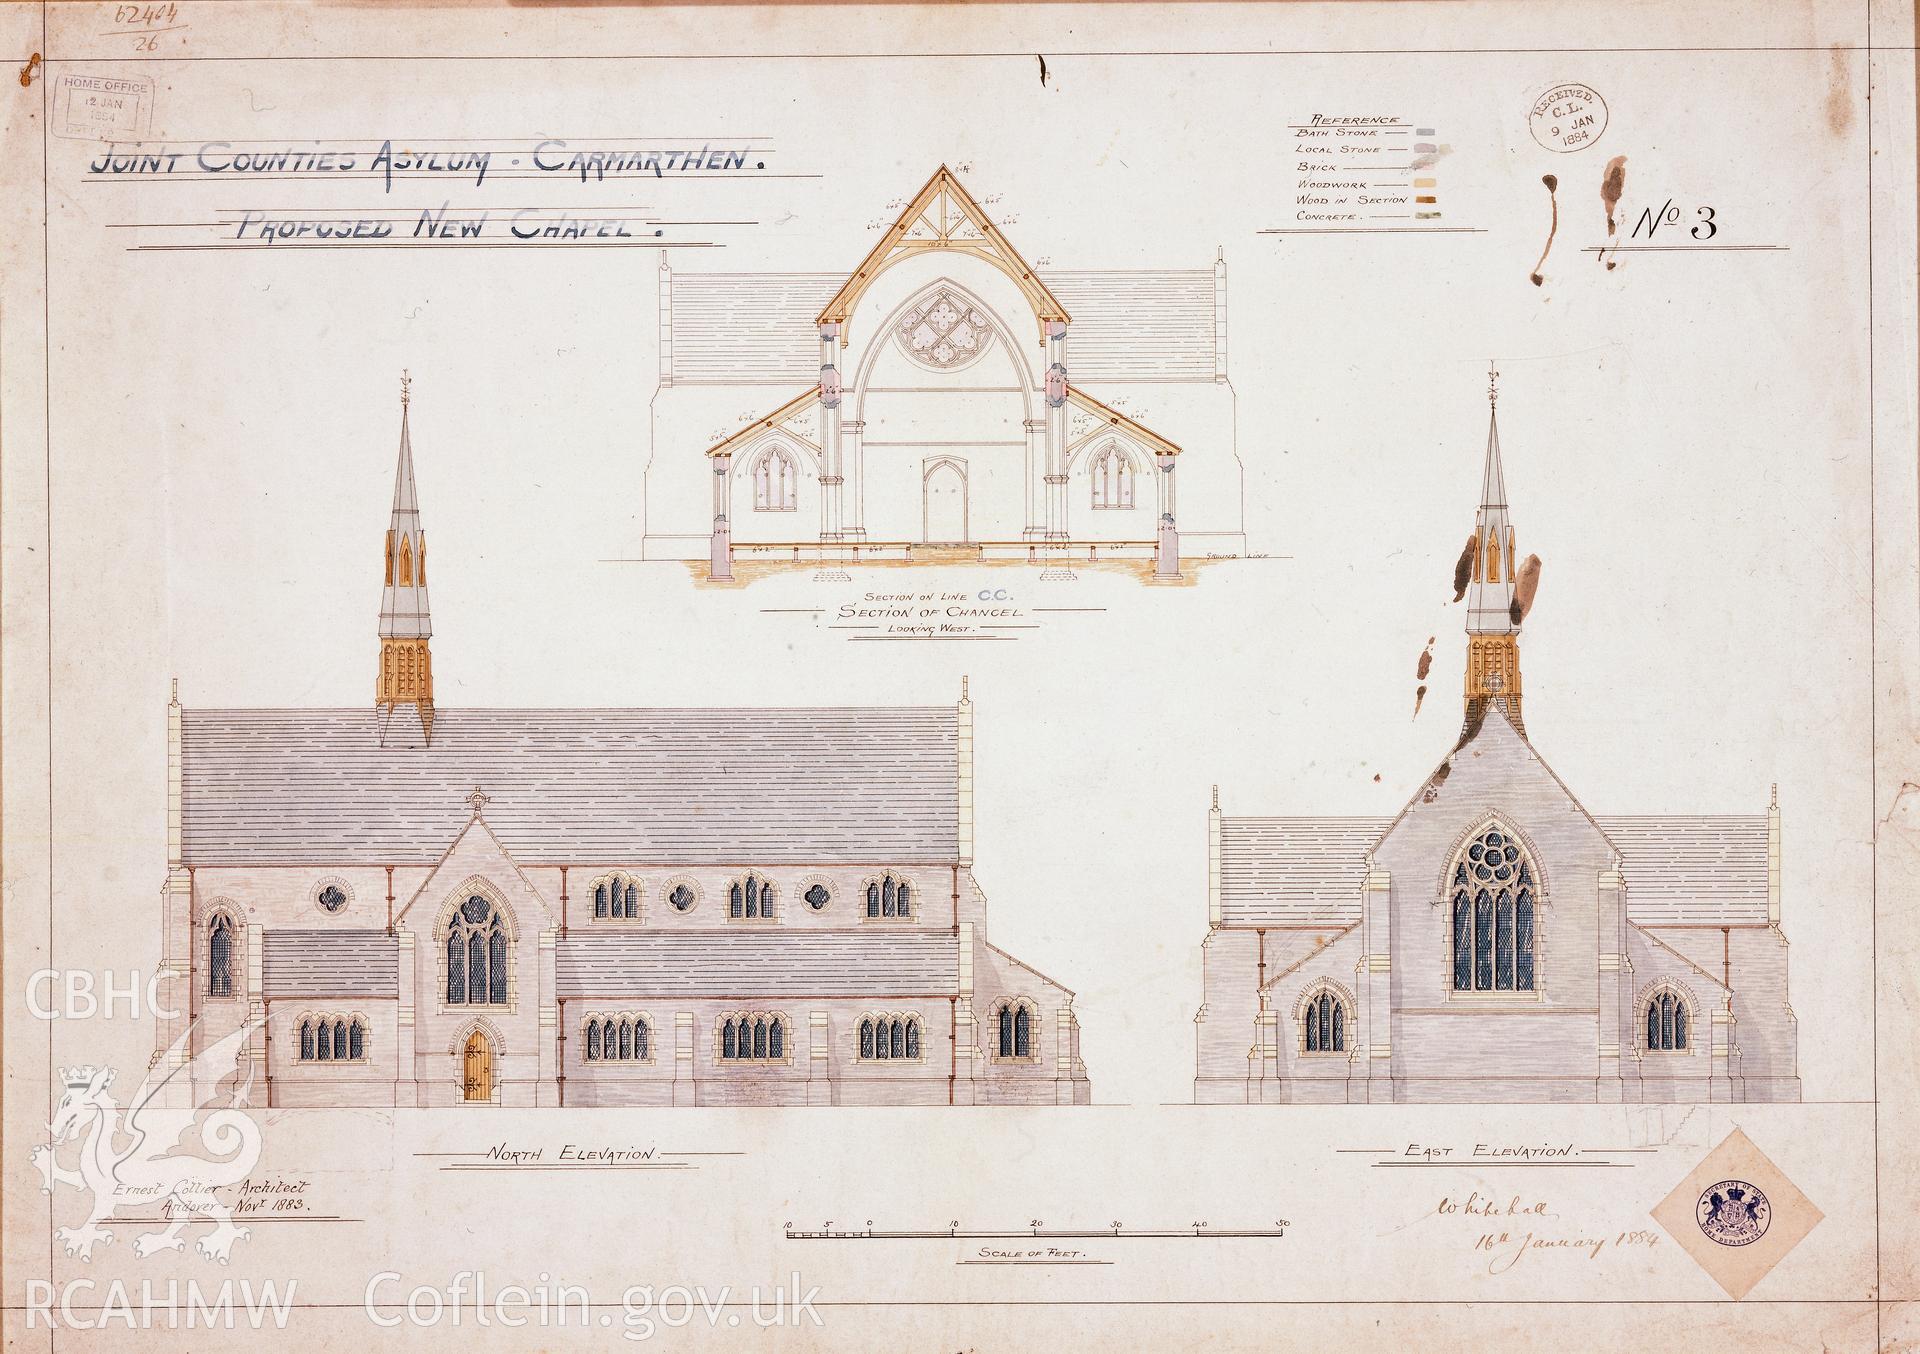 62404
26
HOME OFFICE
12 JAN
1884
RECEIVED.
C. L.
9 JAN
1884
JOINT COUNTIES ASYLUM - CARMARTHEN.
PROPOSED NEW CHAPEL.
REFERENCE
BATH STONE
LOCAL STONE
BRICK
WOODWORK
WOOD IN SECTION
CONCRETE.
No 3
GROUND LINE
SECTION ON LINE C.C.
SECTION OF CHANCEL
LOOKING WEST.
NORTH ELEVATION.
EAST ELEVATION.
Ernest Collier - Architect
Andover - Novr 1883.
10 5 0 10 20 30 40 50
SCALE OF FEET.
Whitehall
16th January 1884
SECRETARY OF STATE
HOME DEPARTMENT
CBHC
RCAHMW
Coflein.gov.uk